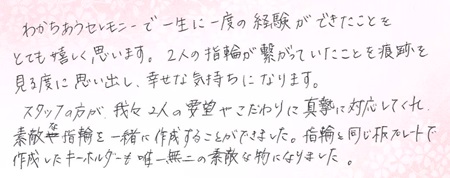 わかちあうセレモニーで一生に一度の経験ができたことを
とても嬉しく思います。2人の指輪が繋がっていたことを痕跡を
見る度に思い出し、幸せな気持ちになります。
スタッフの方が、我々2人の要望やこだわりに真摯に対応してくれ、
素敵な指輪を一緒に作成することができました。指輪と同じ板プレートで
作成したキーホルダーも唯一無二の素敵な物になりました。